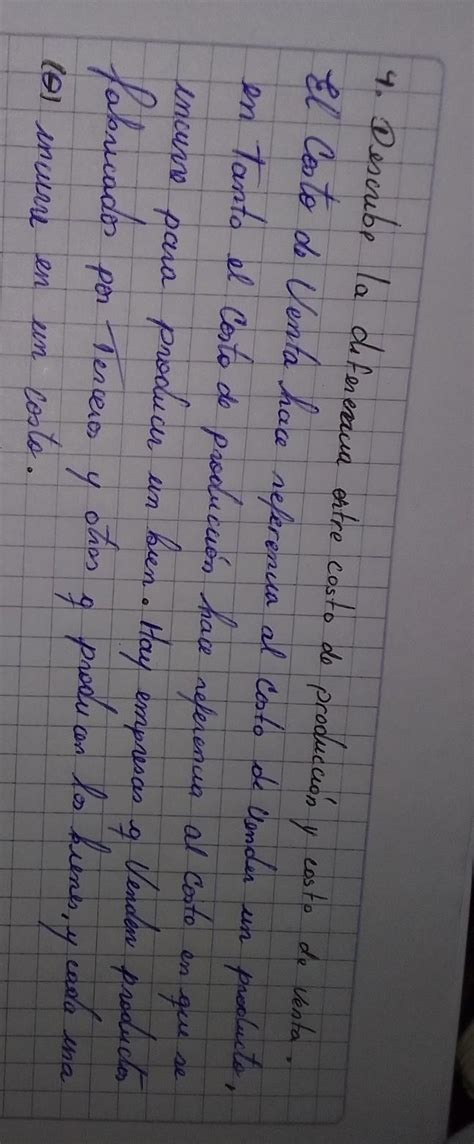 4. Describe la diferencia entre costo de producción y costo de venta.
El Costo de Venta hace referencia al Costo de Vender un producto,
en tanto el Costo de producción hace referencia al Costo en que se
incurre para producir un bien. Hay empresas q Venden productos
fabricados por Terceros y otras q producen los bienes, y cada una
(θ) incurre en un costo.